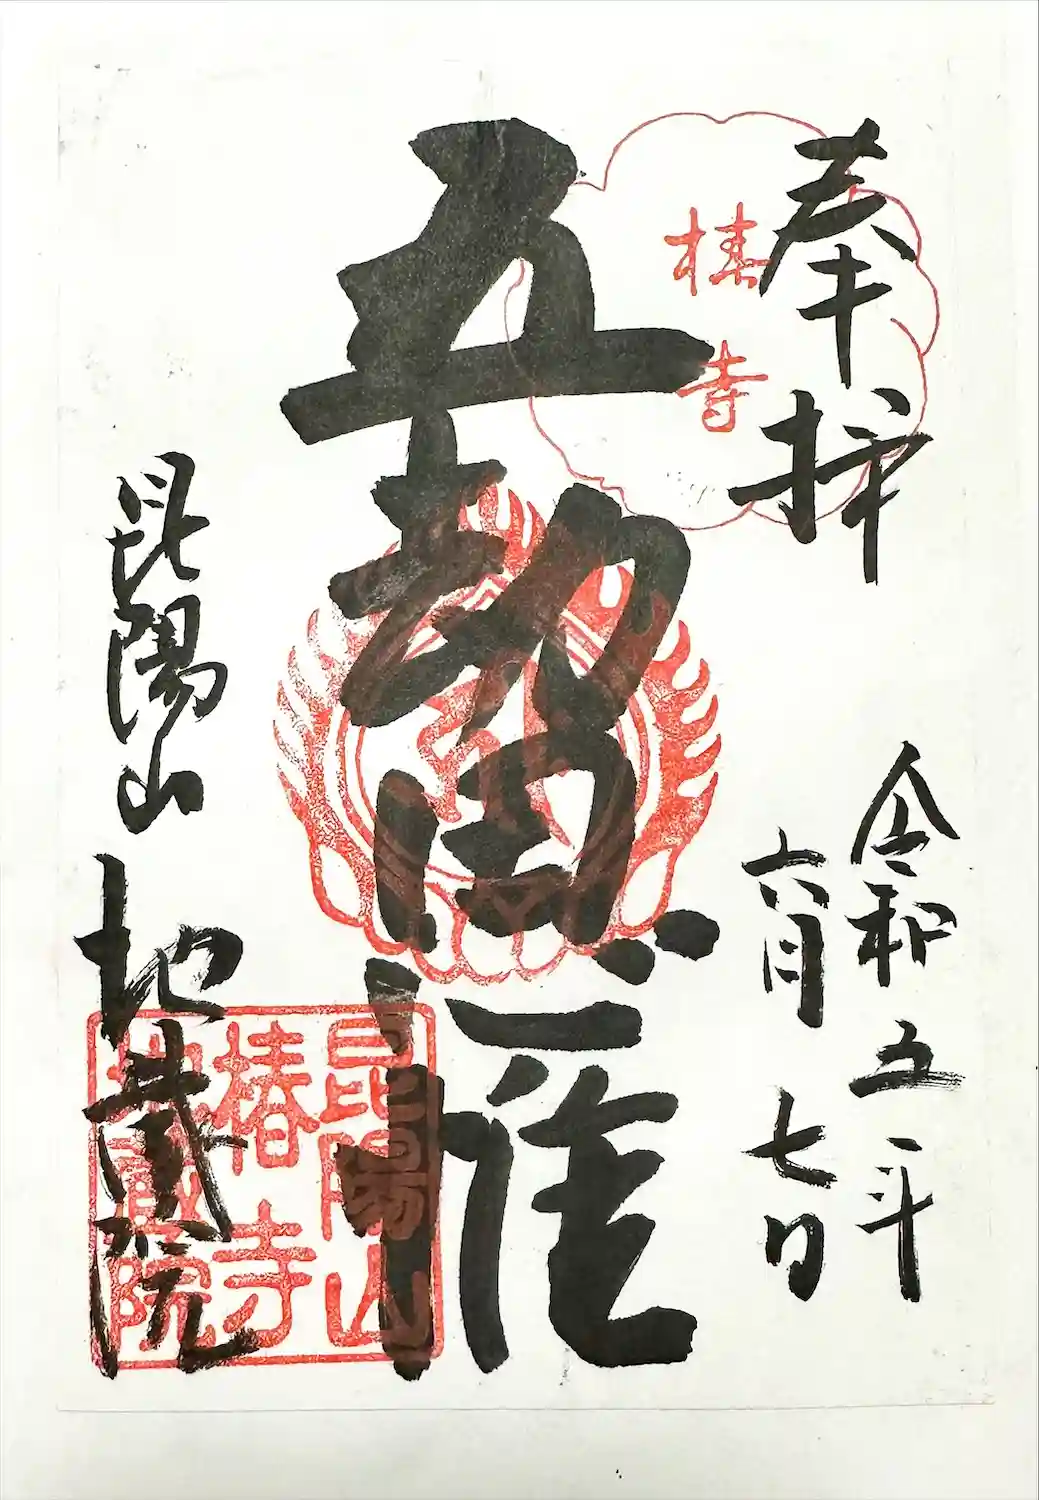 奉拝
令和五年
六月七日
椿寺
五劫思惟
昆陽山
地蔵院
昆陽山
椿寺
地蔵院